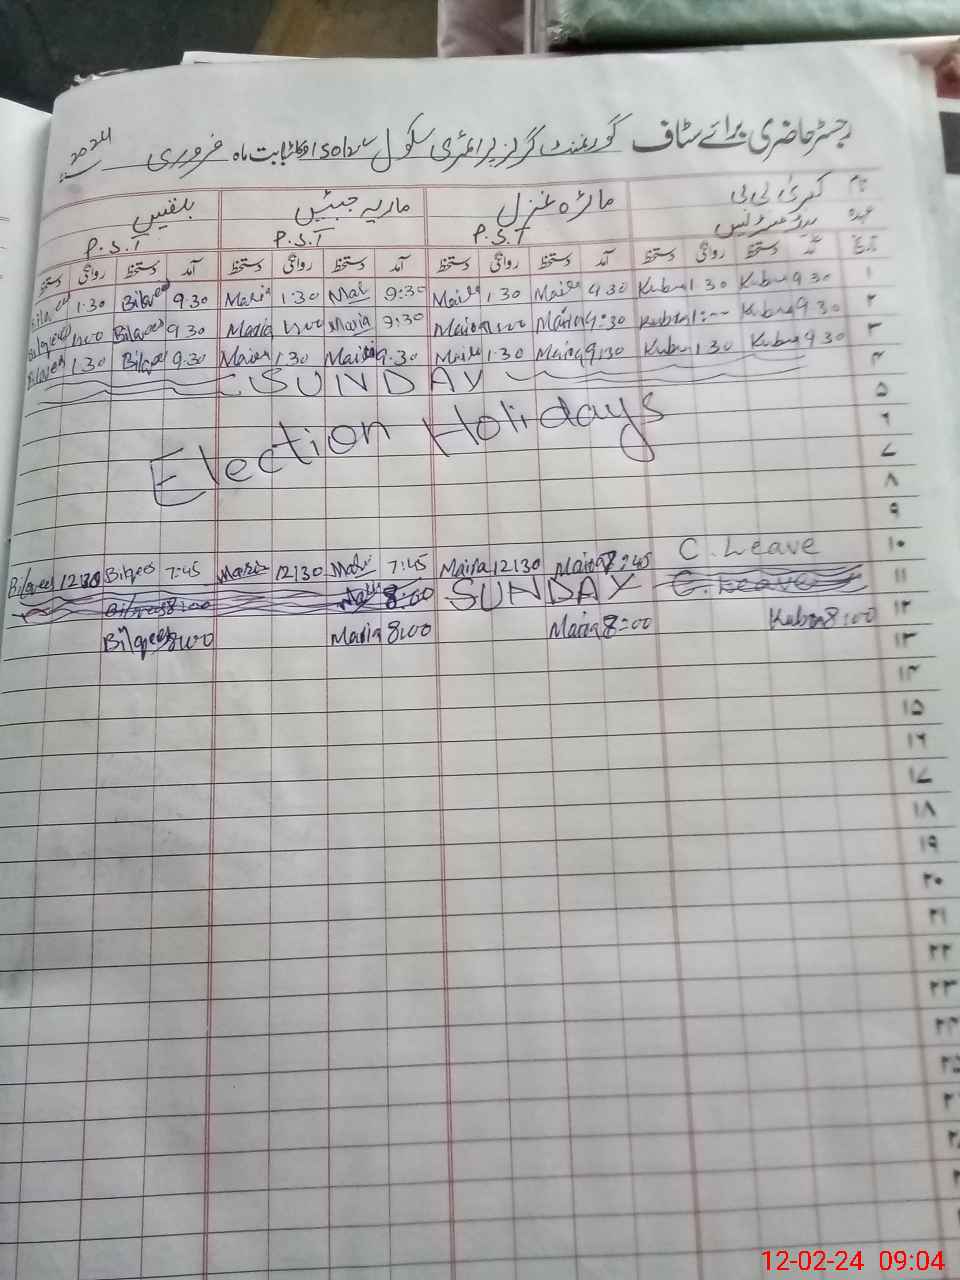 رجسٹر حاضری برائے سٹاف گورنمنٹ گرلز پرائمری سکول بابت ماہ فروری 2024
نام کبریٰ بی بی مائرہ غزل ماریہ جبیں بلقیس
عہدہ ہیڈ مسٹریس P.S.T P.S.T P.S.T
تاریخ آمد دستخط روانگی دستخط آمد دستخط روانگی دستخط آمد دستخط روانگی دستخط آمد دستخط روانگی دستخط
۱ 9 30 Kubra 1 30 Kubra 9 30 Maira 1 30 Maira 9:30 Maria 1 30 Maria 9 30 Bilqees 1.30
۲ 9 30 Kubra Kubra 9:30 Maira Maira 9:30 Maria Maria 9 30 Bilqees Bilqees
۳ 9 30 Kubra 1 30 Kubra 9:30 Maira 1 30 Maira 9.30 Maria 1 30 Maria 9:30 Bilqees 1 30 Bilqees
۴ SUNDAY
۵
۶ Election Holidays
۷
۸
۹
۱۰ C. Leave 7:45 Maira 12:30 Maira 7:45 Maria 12:30 Maria 7:45 Bilqees 12:30 Bilqees
۱۱ C. Leave SUNDAY 8:00 Bilqees 8:00
۱۲ Kubra 8:00 Maira 8:00 Maria 8:00 Bilqees 8:00
۱۳
۱۴
۱۵
۱۶
۱۷
۱۸
۱۹
۲۰
۲۱
۲۲
۲۳
۲۴
۲۵
12-02-24 09:04